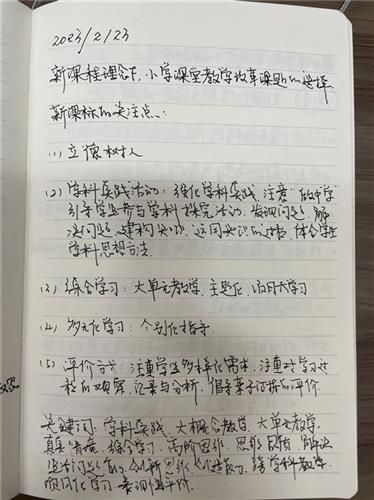 2023/2/23
新课程理念下,小学课堂教学改革课题的选择
新课标的关注点:
(1) 立德树人
(2) 学科实践活动:强化学科实践,注意"做中学"
引导学生参与学科探究活动,发现问题、解
决问题、建构知识、运用知识的过程,体会学
学科思想方法。
(3) 综合学习:大单元教学,主题化、项目式学习
(4) 多元化学习:个别化指导
(5) 评价方式:注重学生多样化需求,注重对学习过
程的观察、记录与分析,倡导基于证据的评价
关键词:学科实践,大概念教学,大单元教学,
真实情境,综合学习,高阶思维,思维品质,解决
问题的创新思维,跨学科教学,
项目化学习,表现性评价.